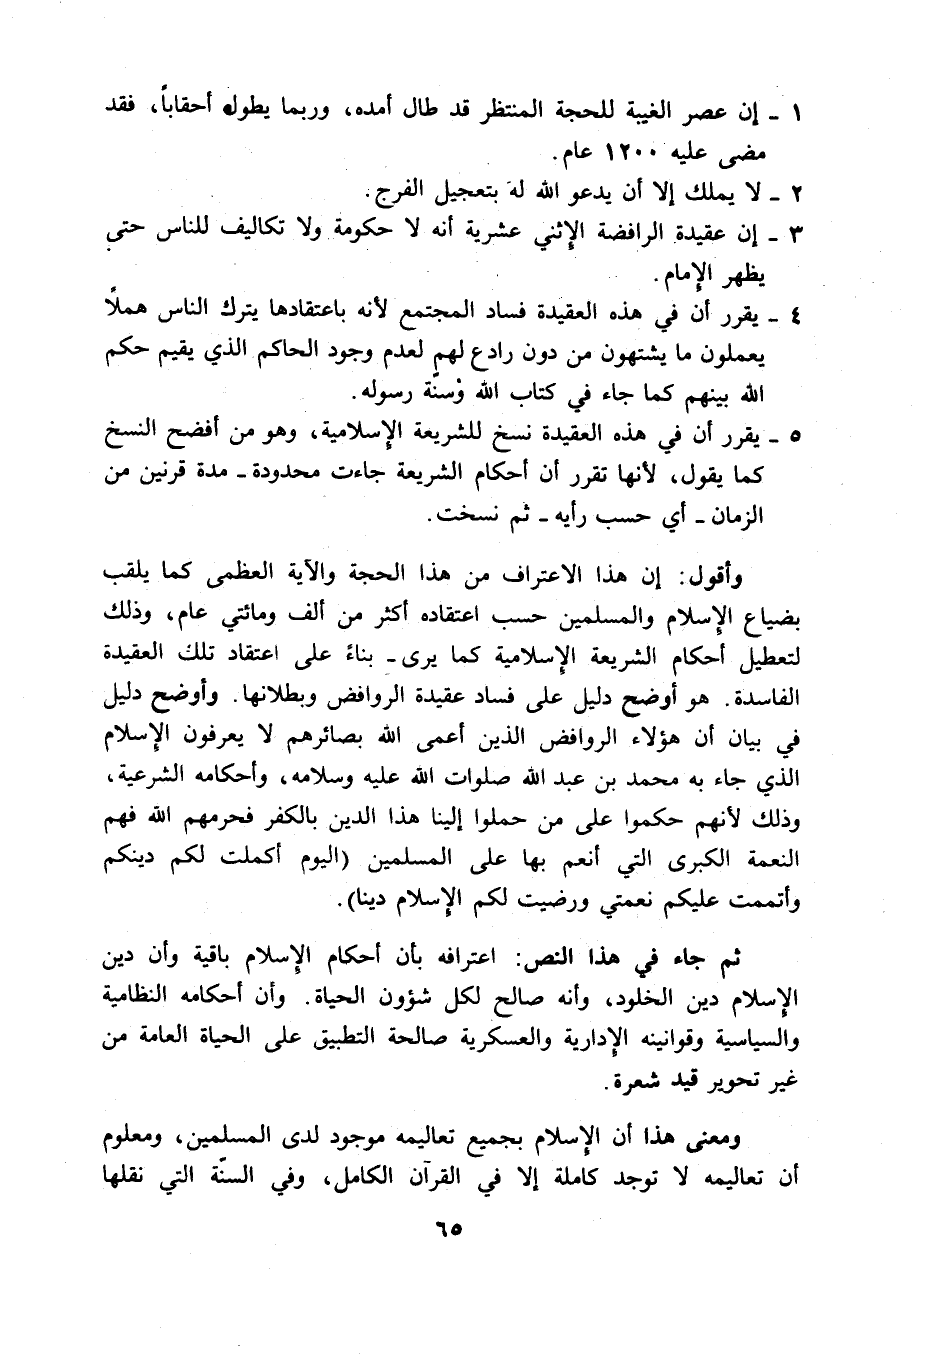 ١ ـ إن عصر الغيبة للحجة المنتظر قد طال أمده، وربما يطول أحقاباً، فقد
مضى عليه ١٢٠٠ عام.
٢ ـ لا يملك إلا أن يدعو الله له بتعجيل الفرج.
٣ ـ إن عقيدة الرافضة الإثني عشرية أنه لا حكومة ولا تكاليف للناس حتى
يظهر الإمام.
٤ ـ يقرر أن في هذه العقيدة فساد المجتمع لأنه باعتقادها يترك الناس هملاً
يعملون ما يشتهون من دون رادع لهم لعدم وجود الحاكم الذي يقيم حكم
الله بينهم كما جاء في كتاب الله وْسنّة رسوله.
٥ ـ يقرر أن في هذه العقيدة نسخ للشريعة الإسلامية، وهو من أفضح النسخ
كما يقول، لأنها تقرر أن أحكام الشريعة جاءت محدودة ـ مدة قرنين من
الزمان ـ أي حسب رأيه ـ ثم نسخت.
وأقول: إن هذا الاعتراف من هذا الحجة والآية العظمى كما يلقب
بضياع الإسلام والمسلمين حسب اعتقاده أكثر من ألف ومائتي عام، وذلك
لتعطيل أحكام الشريعة الإسلامية كما يرى ـ بناءً على اعتقاد تلك العقيدة
الفاسدة. هو أوضح دليل على فساد عقيدة الروافض وبطلانها. وأوضح دليل
في بيان أن هؤلاء الروافض الذين أعمى الله بصائرهم لا يعرفون الإسلام
الذي جاء به محمد بن عبد الله صلوات الله عليه وسلامه، وأحكامه الشرعية،
وذلك لأنهم حكموا على من حملوا إلينا هذا الدين بالكفر فحرمهم الله فهم
النعمة الكبرى التي أنعم بها على المسلمين (اليوم أكملت لكم دينكم
وأتممت عليكم نعمتي ورضيت لكم الإسلام دينا).
ثم جاء في هذا النص: اعترافه بأن أحكام الإسلام باقية وأن دين
الإسلام دين الخلود، وأنه صالح لكل شؤون الحياة. وأن أحكامه النظامية
والسياسية وقوانينه الإدارية والعسكرية صالحة التطبيق على الحياة العامة من
غير تحوير قيد شعرة.
ومعنى هذا أن الإسلام بجميع تعاليمه موجود لدى المسلمين، ومعلوم
أن تعاليمه لا توجد كاملة إلا في القرآن الكامل، وفي السنّة التي نقلها
٦٥